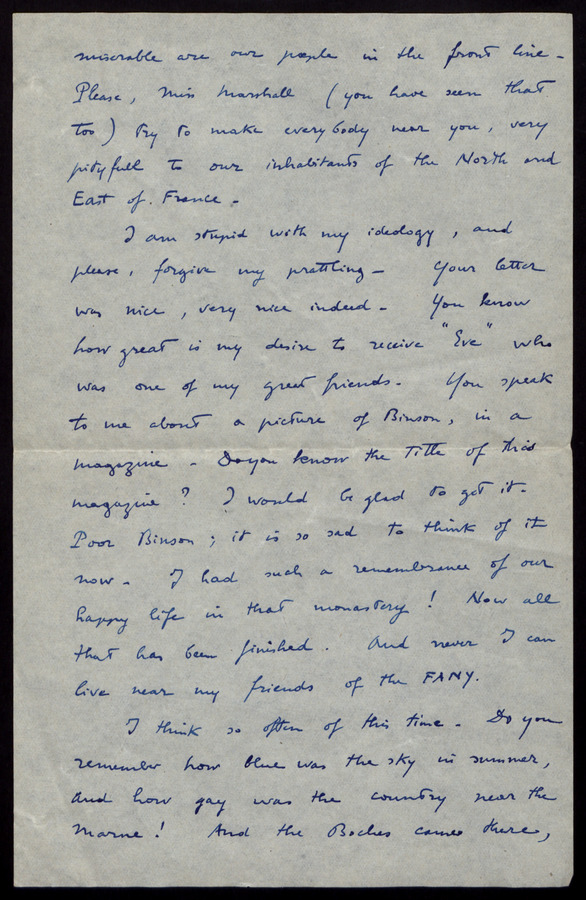 miserable are our people in the front line -
Please, Miss Marshall (you have seen that
too) try to make everybody near you, very
pityfull to our inhabitants of the North and
East of. France -
I am stupid with my ideology, and
please, forgive my prattling - Your letter
was nice, very nice indeed - You know
how great is my desire to receive "Eve" who
was one of my great friends - You speak
to me about a picture of Binson, in a
magazine - Do you know the title of this
magazine ? I would be glad to get it -
Poor Binson ; it is so sad to think of it
now - I had such a remembrance of our
happy life in that monastery ! Now all
that has been finished. And never I can
live near my friends of the FANY.
I think so often of this time - Do you
remember how blue was the sky in summer,
and how gay was the country near the
Marne ! And the Boches came there,